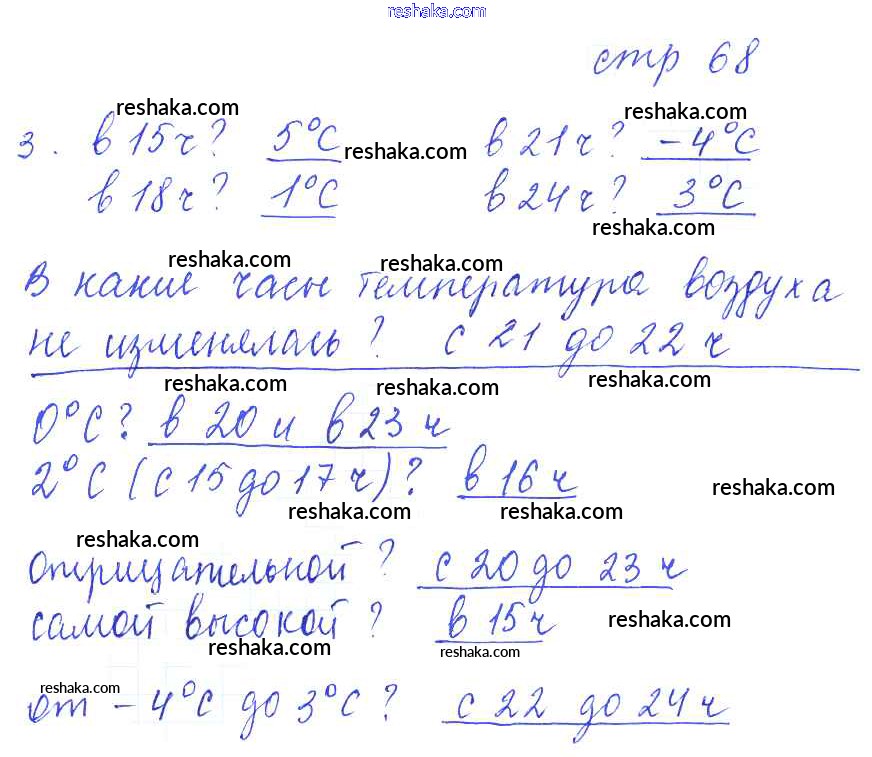 reshaka.com
стр 68
reshaka.com reshaka.com
3. в 15 ч? 5°С reshaka.com в 21 ч? -4°С
в 18 ч? 1°С в 24 ч? 3°С
reshaka.com
reshaka.com reshaka.com
В какие часы температура воздуха
не изменялась? с 21 до 22 ч
reshaka.com reshaka.com reshaka.com
0°С? в 20 и в 23 ч
2°С (с 15 до 17 ч)? в 16 ч reshaka.com
reshaka.com reshaka.com
reshaka.com
отрицательной? с 20 до 23 ч
самой высокой? в 15 ч reshaka.com
reshaka.com reshaka.com
reshaka.com
от -4°С до 3°С? с 22 до 24 ч